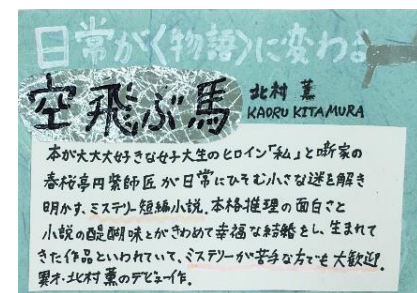 日常が〈物語〉に変わる
空飛ぶ馬
北村 薫
KAORU KITAMURA
本が大大大好きな女子大生のヒロイン「私」と噺家の
春桜亭円紫師匠が日常にひそむ小さな謎を解き
明かす、ミステリー短編小説。本格推理の面白さと
小説の醍醐味とがきわめて幸福な結婚をし、生まれて
きた作品といわれていて、ミステリーが苦手な方でも大歓迎。
異才・北村薫のデビュー作。